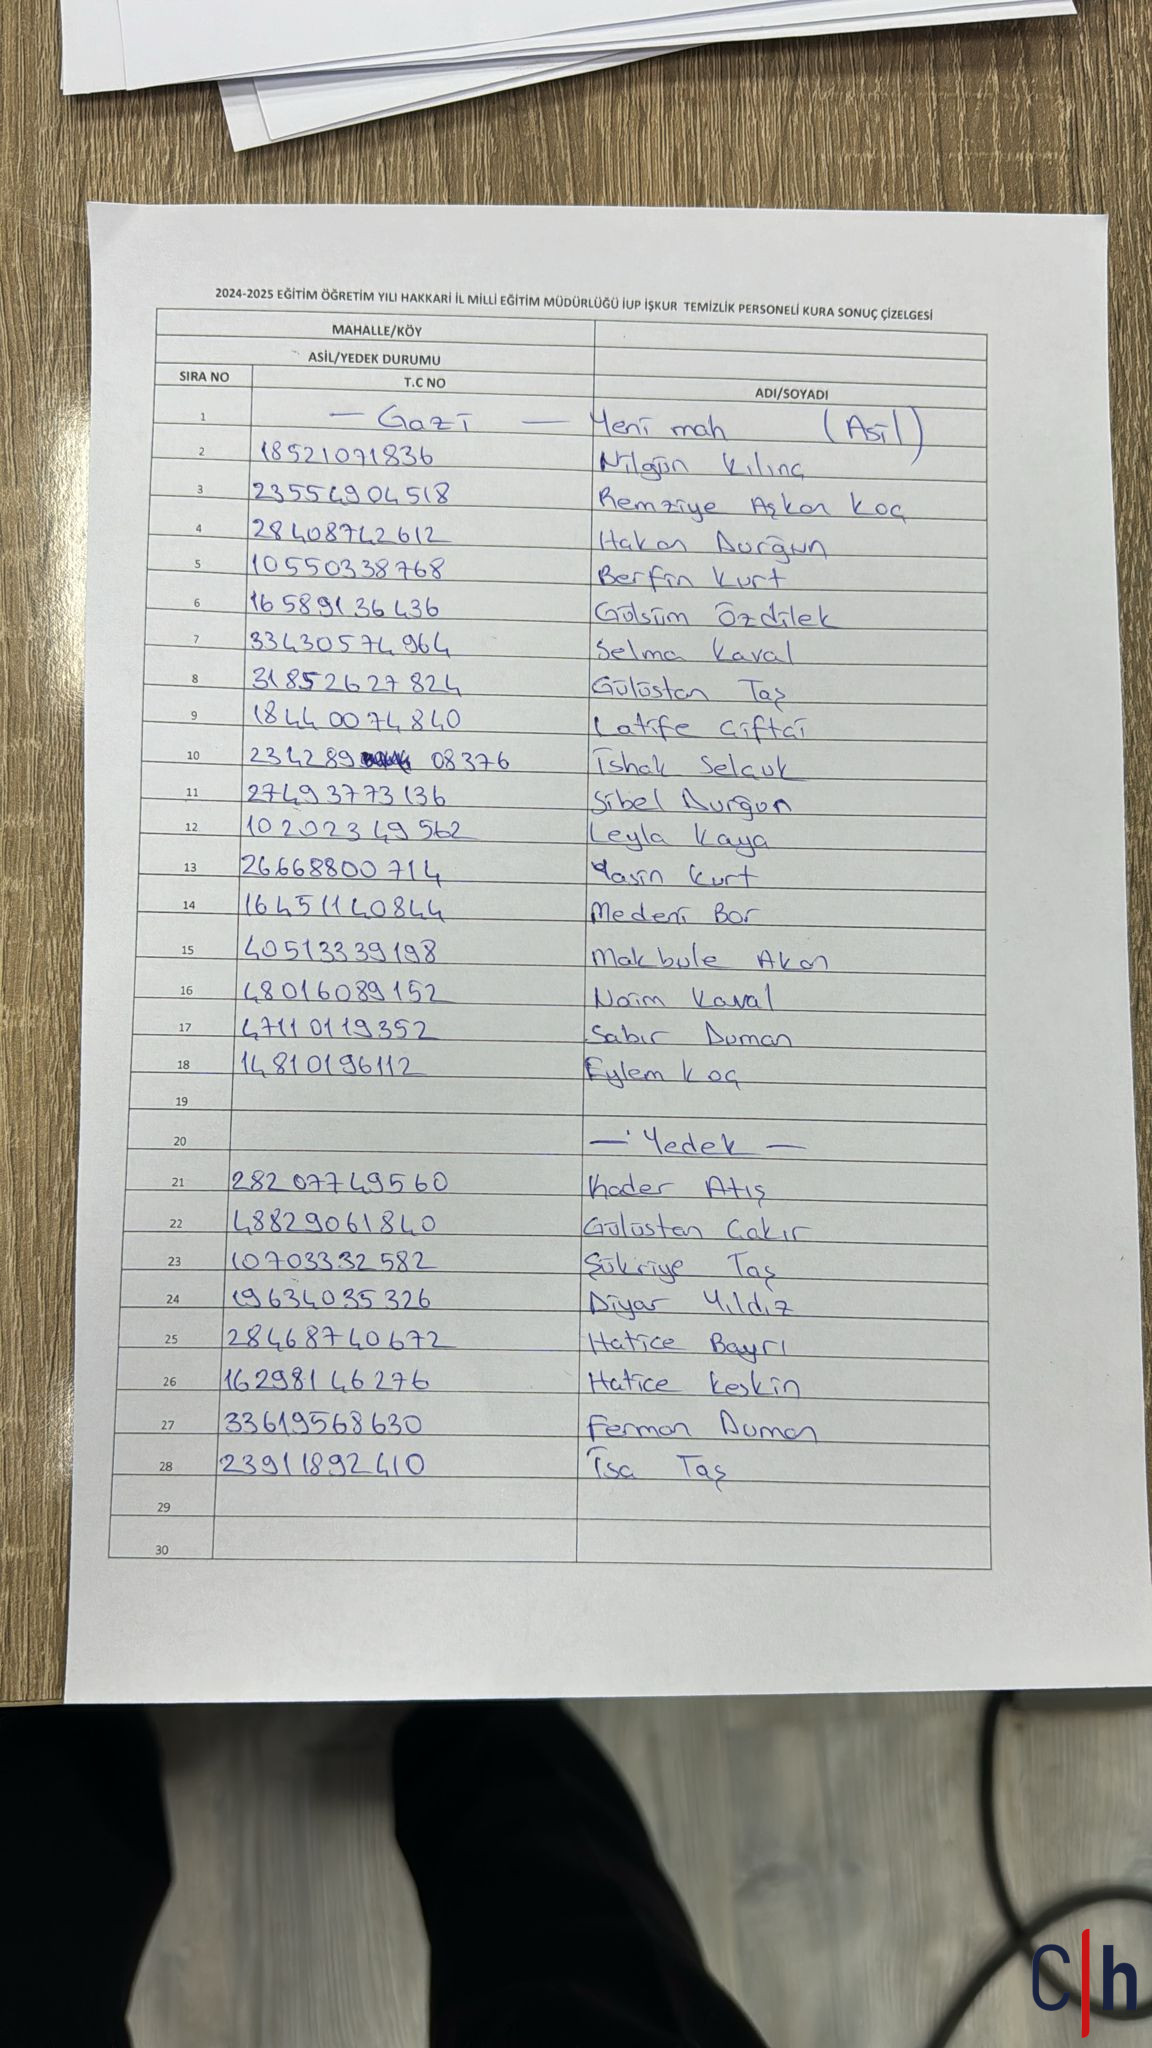 2024-2025 EĞİTİM ÖĞRETİM YILI HAKKARİ İL MİLLİ EĞİTİM MÜDÜRLÜĞÜ İUP İŞKUR TEMİZLİK PERSONELİ KURA SONUÇ ÇİZELGESİ
MAHALLE/KÖY
ASİL/YEDEK DURUMU
SIRA NO T.C NO ADI/SOYADI
1 — Gazi — Yeni mah (Asil)
2 18521071836 Nilgün Kılınç
3 23554904518 Remziye Aşkan Koç
4 28408742612 Hakan Durğun
5 10550338768 Berfin Kurt
6 16589136436 Gülsüm Özdilek
7 33430574964 Selma Kaval
8 31852627824 Gülüstan Taş
9 18440074840 Latife Çiftçi
10 234289 08376 İshak Selçuk
11 27493773136 Sibel Durğun
12 10202349562 Leyla Kaya
13 26668800714 Yasin Kurt
14 16451140844 Medeni Bor
15 40513339198 Makbule Akan
16 48016089152 Naim Kaval
17 47110119352 Sabır Duman
18 14810196112 Eylem Koç
19
20 — Yedek —
21 28207749560 Kader Atış
22 48829061840 Gülüstan Çakır
23 10703332582 Şükriye Taş
24 19634035326 Diyar Yıldız
25 28468740672 Hatice Bayrı
26 16298146276 Hatice Keskin
27 33619568630 Ferman Duman
28 23911892410 İsa Taş
29
30
C|h